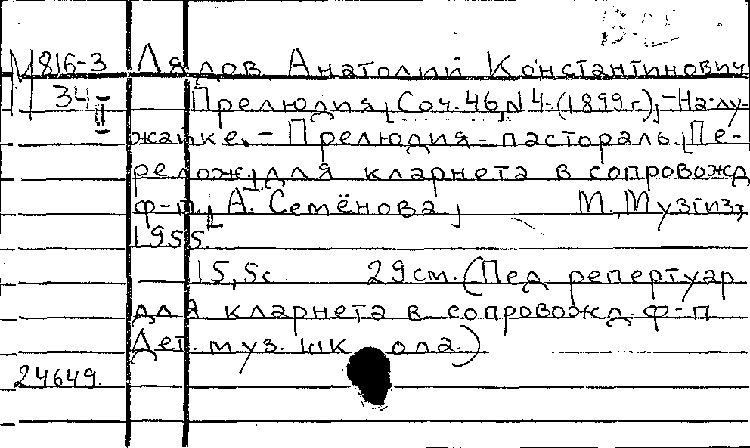 М816-3 Лядов Анатолий Константинович
34-II Прелюдия, Соч. 46, N4-(1899г.), -На лу-
жайке. - Прелюдия-пастораль. [Пе-
релож] для кларнета в сопровожд
ф-п, А. Семёнова, М., Музгиз,
1955
15,5с 29см. (Пед. репертуар
для кларнета в сопровожд. ф-п
Дет. муз. шк ола.)
24649.